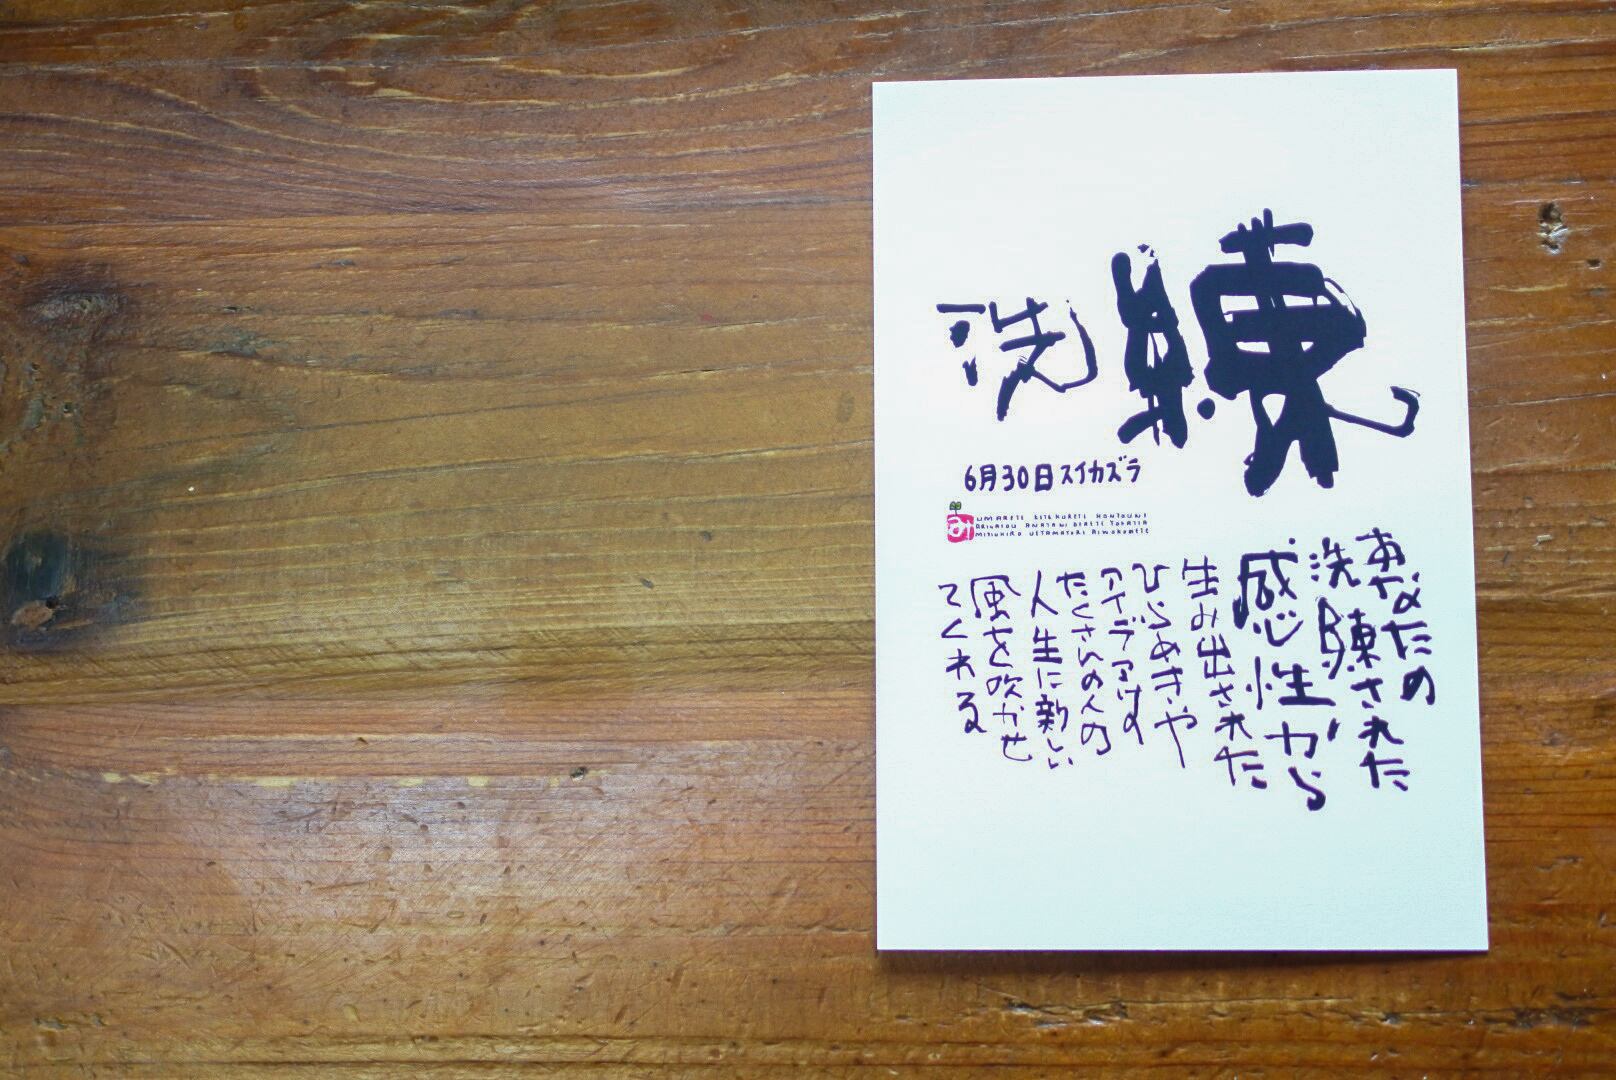 洗練
6月30日スイカズラ
UMARETE KITEKURETE HONTOUNI
ARIGATOU ANATANI DEAETE YOKATTA
MITSUHIRO
あなたの
洗練された
感性から
生み出された
ひらめきや
アイデアは
たくさんの人の
人生に新しい
風を吹かせ
てくれる